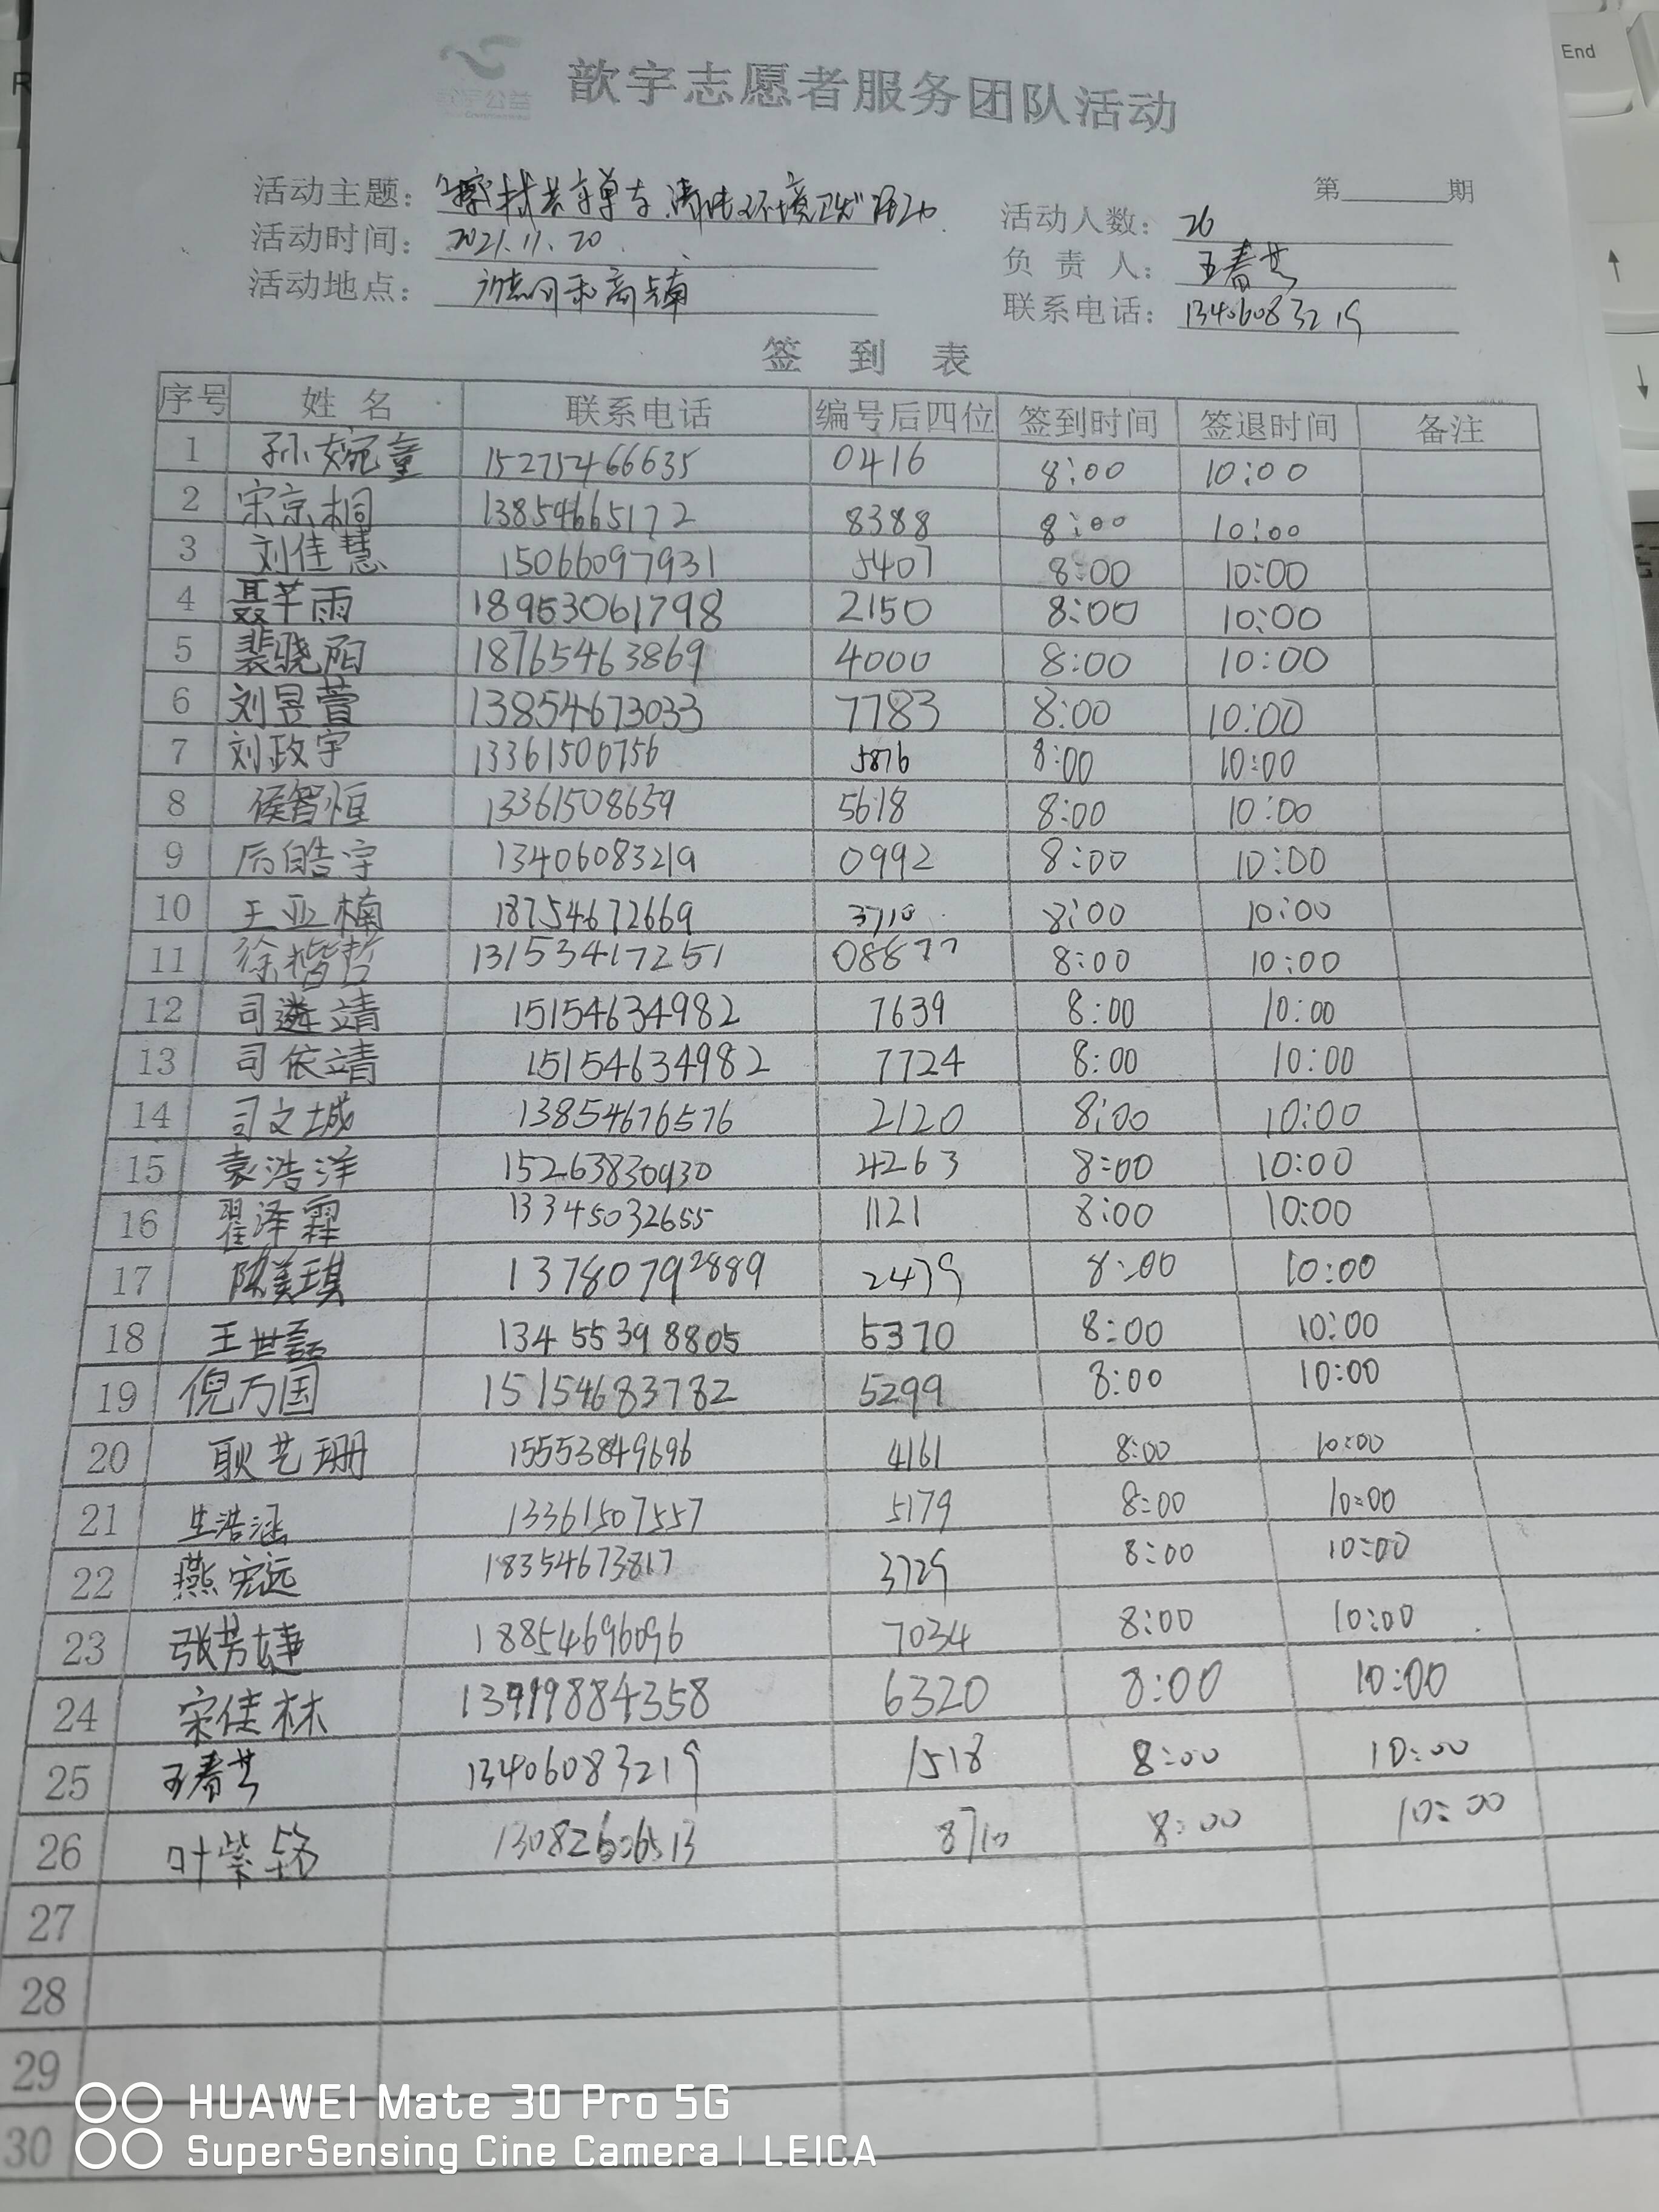 歆宇公益
歆宇志愿者服务团队活动
第 期
活动主题： 共享单车 清 环境卫生"活动
活动人数： 26
活动时间： 2021.11.20
负责人： 王春芝
活动地点：
联系电话： 13406083219
签到表
序号 姓名 联系电话 编号后四位 签到时间 签退时间 备注
1 孙婉童 15275466635 0416 8:00 10:00
2 宋京桐 13854665172 8388 8:00 10:00
3 刘佳慧 15066097931 5407 8:00 10:00
4 聂芊雨 18953061798 2150 8:00 10:00
5 裴晓阳 18765463869 4000 8:00 10:00
6 刘昱萱 13854673033 7783 8:00 10:00
7 刘政宇 13361500756 5876 8:00 10:00
8 侯智恒 13361508659 5618 8:00 10:00
9 皓宇 13406083219 0992 8:00 10:00
10 王亚楠 18754672669 3710 8:00 10:00
11 徐楷哲 13153417251 0877 8:00 10:00
12 司遴靖 15154634982 7639 8:00 10:00
13 司依靖 15154634982 7724 8:00 10:00
14 司文城 13854676576 2120 8:00 10:00
15 袁浩洋 15263830930 4263 8:00 10:00
16 翟泽霖 13345032655 1121 8:00 10:00
17 陈美琪 13780792889 2479 8:00 10:00
18 王世 13455398805 5370 8:00 10:00
19 倪万国 15154683782 5299 8:00 10:00
20 耿艺珊 15553849696 4161 8:00 10:00
21 生浩涵 13361507557 5179 8:00 10:00
22 燕宏远 18354673817 3729 8:00 10:00
23 张芳婕 18854696096 7034 8:00 10:00
24 宋佳林 884358 6320 8:00 10:00
25 王春芝 13406083219 1518 8:00 10:00
26 叶紫铭 13082606513 8710 8:00 10:00
27
28
29
30
HUAWEI Mate 30 Pro 5G
SuperSensing Cine Camera | LEICA
End